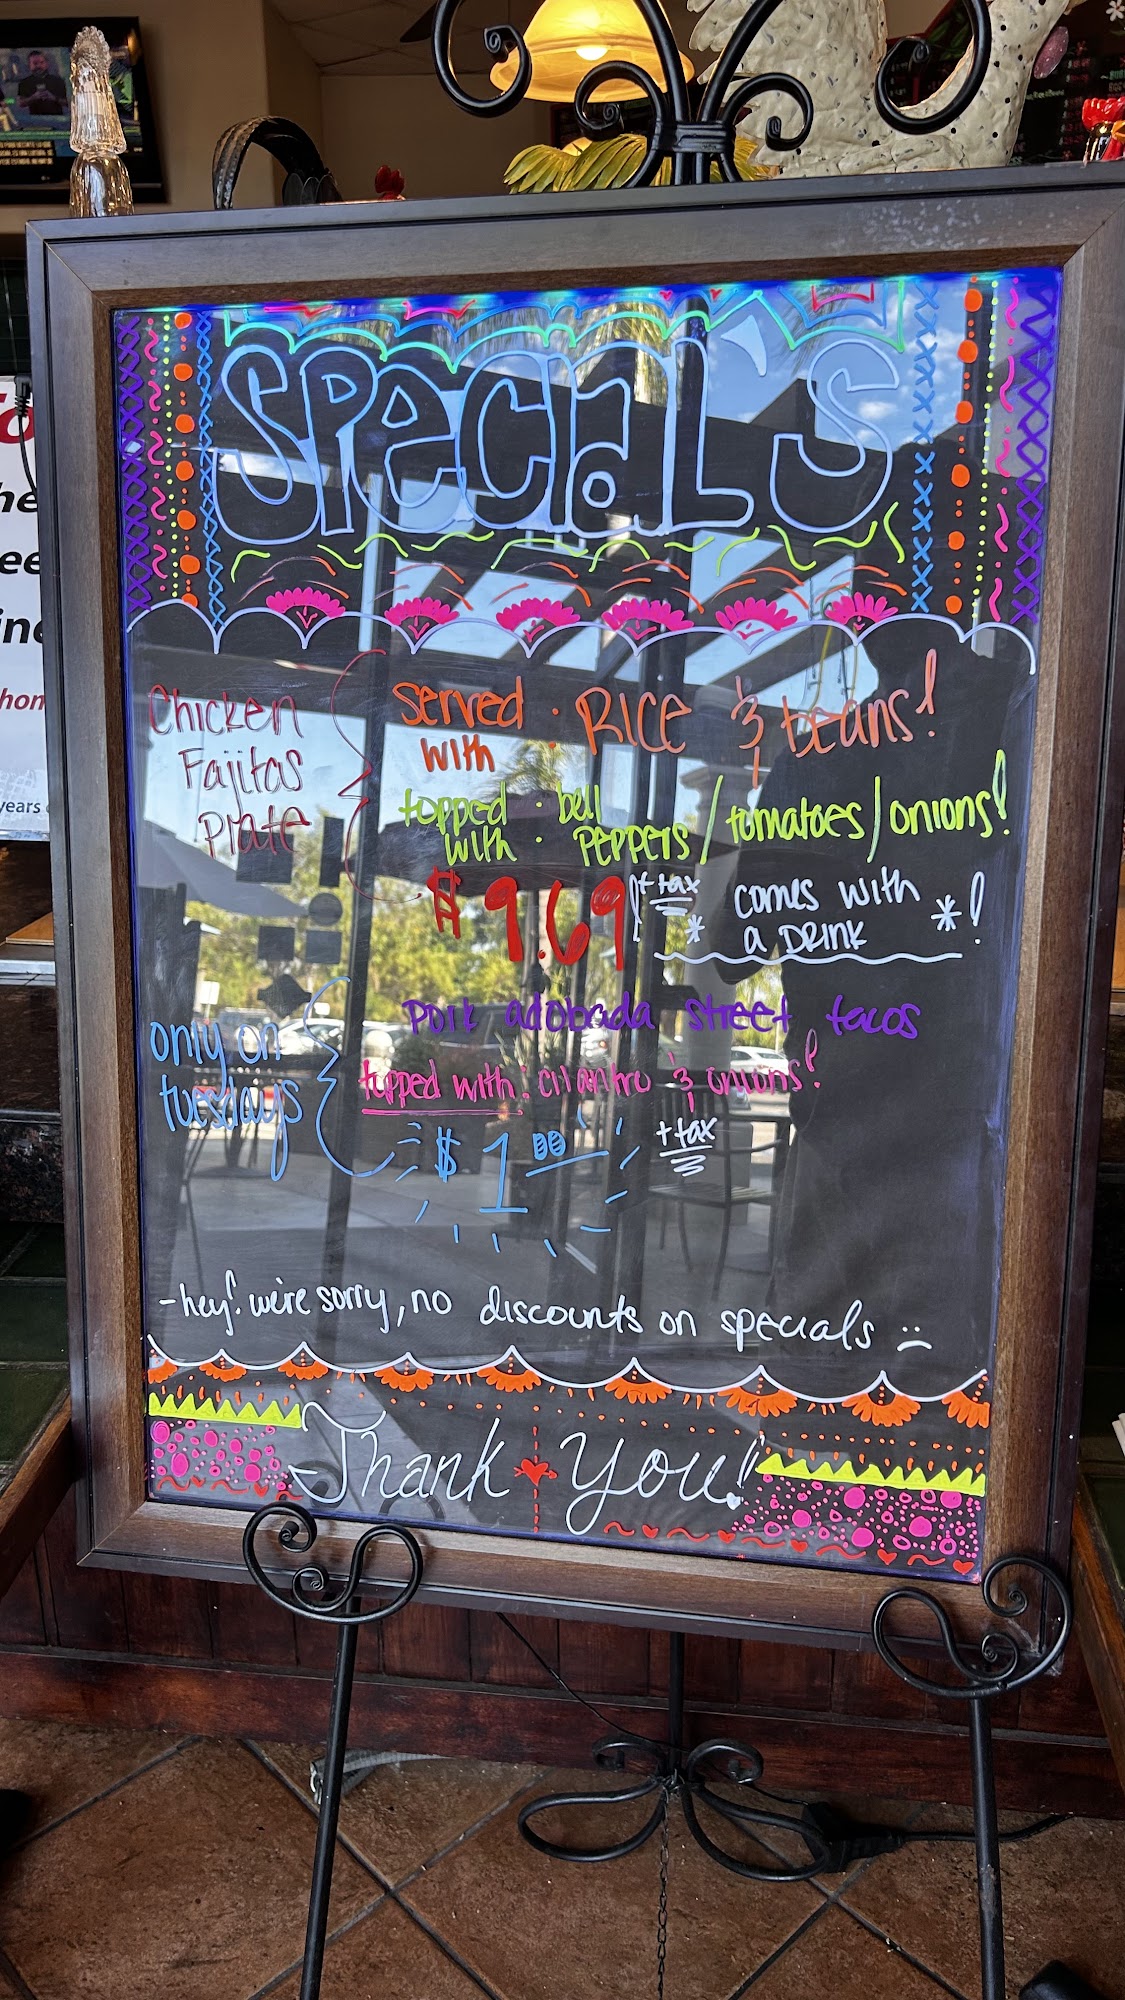 SPECIAL'S
Chicken
Fajitas
Plate
served
with : RICE & beans!
topped
with : bell
peppers / tomatoes / onions!
$9.69! + tax
* comes with
a DRINK *!
only on
tuesdays
Pork adobada street tacos
topped with: cilantro & onions!
$1.00 + tax
- hey! we're sorry, no discounts on specials :(
Thank You!!
years